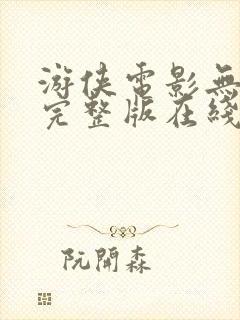 游侠電影無
完整版在綫
阮開森